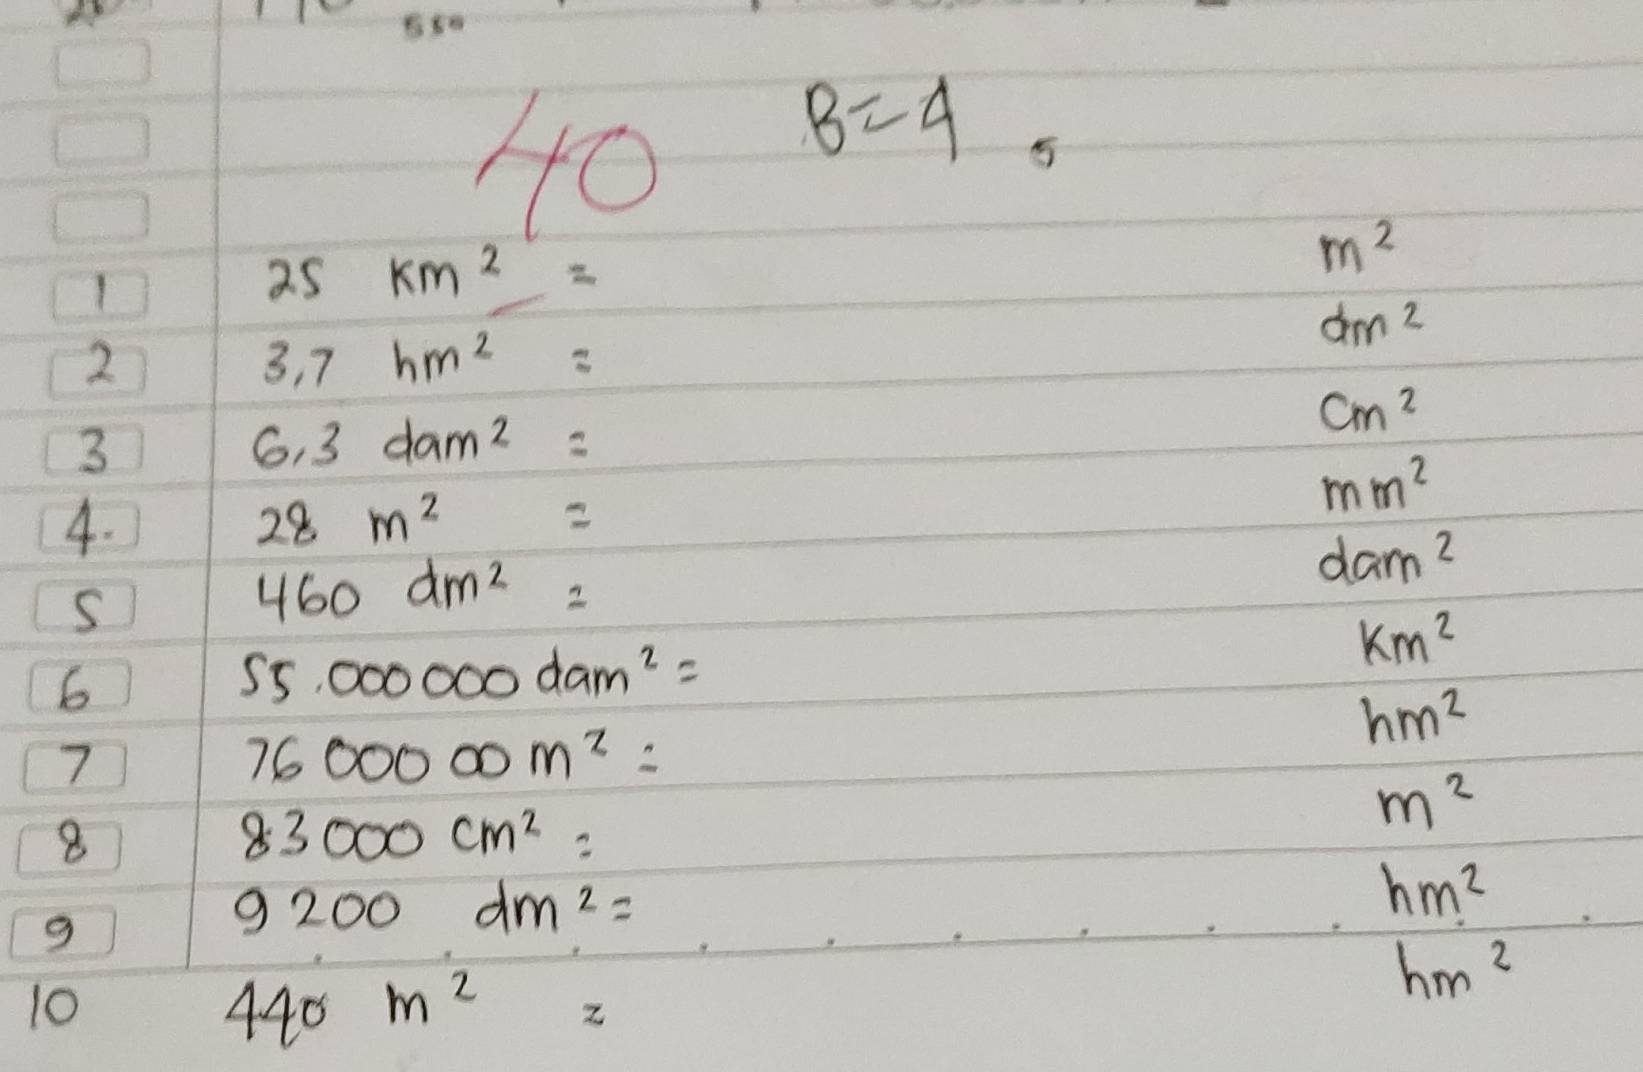 550
40 B=4
1 25 km² = m²
2 3,7 hm² = dm²
3 6,3 dam² = cm²
4. 28 m² = mm²
5 460 dm² = dam²
6 55.000000 dam² = km²
7 7600000 m² = hm²
8 83000 cm² = m²
9 9200 dm² = hm²
10 440 m² = hm²